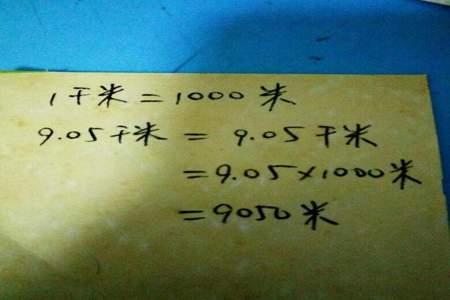 1千米=1000米
9.05千米=9.05千米
=9.05×1000米
=9050米